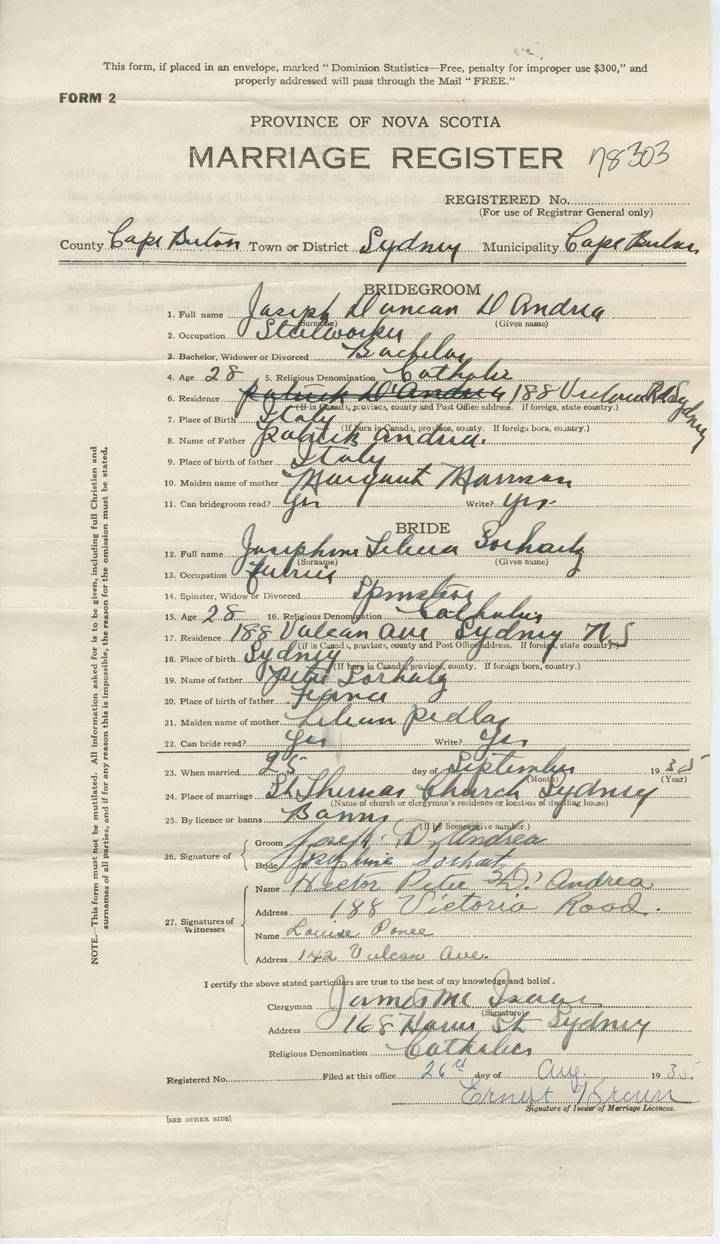 This form, if placed in an envelope, marked "Dominion Statistics—Free, penalty for improper use $300," and
properly addressed will pass through the Mail "FREE."
FORM 2
PROVINCE OF NOVA SCOTIA
MARRIAGE REGISTER 78303
REGISTERED No.
(For use of Registrar General only)
County Cape Breton Town or District Sydney Municipality Cape Breton
BRIDEGROOM
1. Full name Joseph Duncan D'Andrea
(Surname) (Given name)
2. Occupation Steelworker
3. Bachelor, Widower or Divorced Bachelor
4. Age 28 5. Religious Denomination Catholic
6. Residence Patrick D'Andrea 188 Victoria Rd Sydney
(If in Canada, province, county and Post Office address. If foreign, state country.)
7. Place of Birth Italy
(If born in Canada, province, county. If foreign born, country.)
8. Name of Father Patrick Andrea.
9. Place of birth of father Italy
10. Maiden name of mother Margaret
11. Can bridegroom read? Yes Write? Yes
BRIDE
12. Full name Josephine
(Surname) (Given name)
13. Occupation
14. Spinster, Widow or Divorced Spinster
15. Age 28 16. Religious Denomination Catholic
17. Residence 188 Vulcan Ave Sydney N.S
(If in Canada, province, county and Post Office address. If foreign, state country.)
18. Place of birth Sydney
(If born in Canada, province, county. If foreign born, country.)
19. Name of father Peter
20. Place of birth of father France
21. Maiden name of mother Lilian Pedlar
22. Can bride read? Yes Write? Yes
23. When married 25 day of September 1935
(Month) (Year)
24. Place of marriage St Theresas Church Sydney
(Name of church or clergyman's residence or location of dwelling house)
25. By licence or banns Banns
(If by licence give number.)
26. Signature of
Groom Joseph D. Andrea
Bride Josephine Sorhait
27. Signatures of Witnesses
Name Hector Peter D'Andrea
Address 188 Victoria Road.
Name Louise Ponee
Address 142 Vulcan Ave.
I certify the above stated particulars are true to the best of my knowledge and belief.
Clergyman James Mc Isaac
(Signature)
Address 168 St Sydney
Religious Denomination Catholic
Registered No. Filed at this office 26 day of Aug. 1935.
Ernest Brown
Signature of Issuer of Marriage Licences.
[SEE OTHER SIDE]
NOTE.—This form must not be mutilated. All information asked for is to be given, including full Christian and
surnames of all parties, and if for any reason this is impossible, the reason for the omission must be stated.